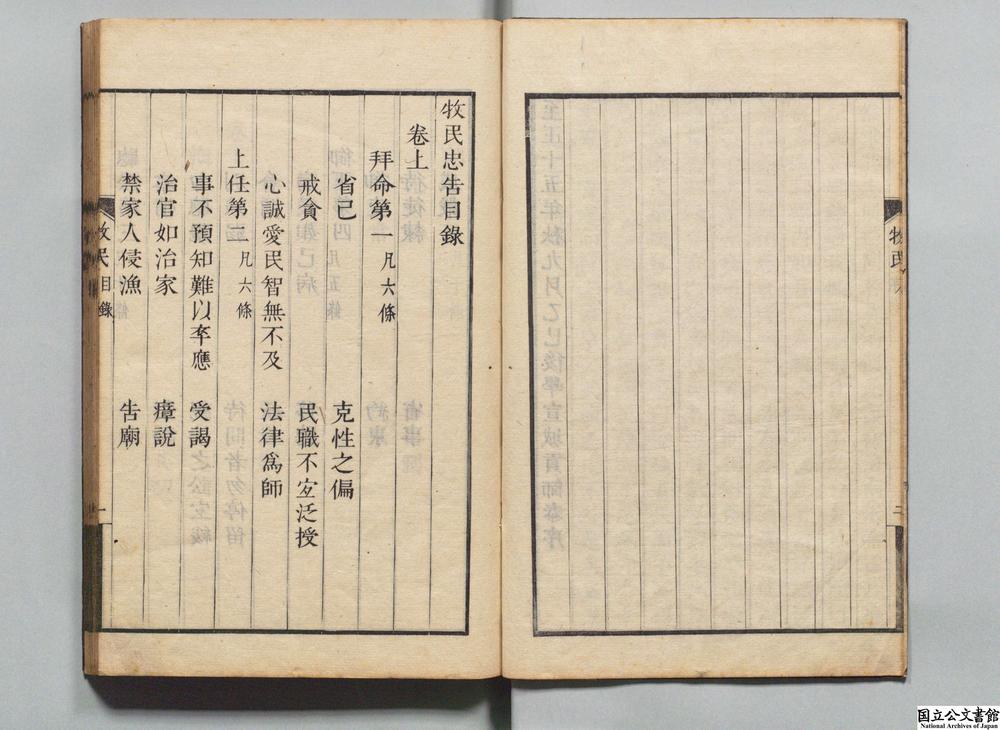 牧民
二
牧民忠告目録
卷上
拜命第一 凡六條
省己 克性之偏
戒貪 民職不宜泛授
心誠愛民智無不及 法律爲師
上任第二 凡六條
事不預知難以卒應 受謁
治官如治家 瘴說
禁家人侵漁 告廟
牧民 目録
一
国立公文書館
National Archives of Japan